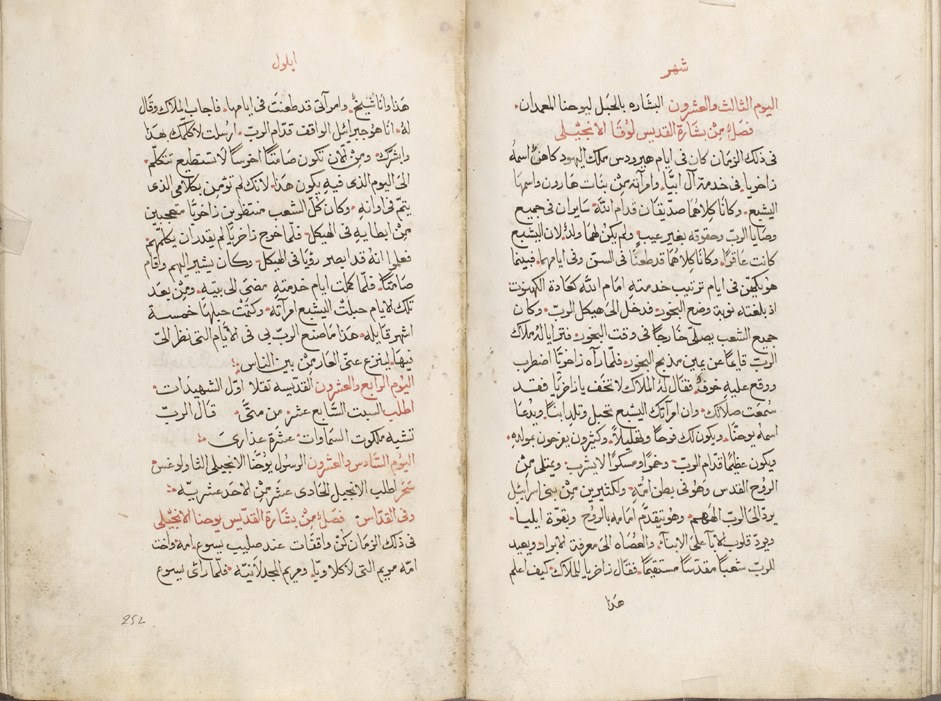 شهر
اليوم الثالث والعشرون البشاره بالحبل ليوحنا المعمدان
فصل من بشارة القديس لوقا الانجيلي
في ذلك الزمان كان في ايام هيرودس ملك اليهود كاهن اسمه
زاخريا في خدمة آل ابيا وامرآته من بنات هارون واسمها
اليشبع وكانا كلاهما صديقان قدام الله سايران في جميع
وصايا الرب وحقوقه بغير عيب ولم يكن لهما ولد لان اليشبع
كانت عاقرا وكانا كلاهما قد طعنا في السن وفي ايامهما فبينما
هو يكهن في ايام ترتيب خدمته امام الله كعادة الكهنوت
اذ بلغته نوبة وضع البخور فدخل الى هيكل الرب وكان
جميع الشعب يصلي خارجا في وقت البخور فترايا له ملاك
الرب قايما عن يمين مذبح البخور فلما رآه زاخريا اضطرب
ووقع عليه خوف فقال له الملاك لا تخف يا زاخريا فقد
سمعت صلاتك وان امرآتك اليشبع تحبل وتلد ابنا ويدعا
اسمه يوحنا ويكون لك فرحا وتهليلا وكثيرون يفرحون بمولده
ويكون عظيما قدام الرب وخمرا ومسكرا لا يشرب ويمتلى من
الروح القدس وهو في بطن امه ولكثيرين من بني اسرائيل
يرد الى الرب الههم وهو يتقدم امامه بالروح وبقوة ايليا
ويرد قلوب الابآ على الابنآء والعصاه الى معرفة الابراد ويعيد
للرب شعبا مقدسا مستقيما فقال زاخريا للملاك كيف اعلم
هذا
ايلول
هذا وانا شيخ وامرآتي قد طعنت في ايامها فاجاب الملاك وقال
له انا هو جبرائيل الواقف قدام الرب ارسلت لاكلمك هذا
وابشرك ومن الآن تكون صامتا اخوسا لا تستطيع تتكلم
الى اليوم الذي فيه يكون هذا لانك لم تؤمن بكلامي الذي
يتم في اوانه وكان كل الشعب منتظرين زاخريا متعجبين
من ابطايه في الهيكل فلما خرج زاخريا لم يقدر ان يكلمهم
فعلموا انه قد ابصر رؤيا في الهيكل وكان يشير اليهم واقام
صامتا فلما كملت ايام خدمته مضى الى بيته ومن بعد
تلك الايام حبلت اليشبع امرآته وكتمت حبلها خمسة
اشهر قايله هذا ما صنع الرب بي في الايام التي نظر الى
فيها لينزع عني العار من بين الناس
اليوم الرابع والعشرون القديسه تقلا اول الشهيدات
اطلب السبت السابع عشر من متى قال الرب
تشبه ملكوت السماوات عشرة عذارى
اليوم السادس والعشرون الرسول يوحنا الانجيلي الثاولوغس
سحر اطلب الانجيل الحادى عشر من الاحد عشريه
وفي القداس فصل من بشارة القديس يوحنا الانجيلي
في ذلك الزمان كن واقفات عند صليب يسوع امه واخت
امه مريم التي لاكلاوبا ومريم المجدلانية فلما رائ يسوع
252